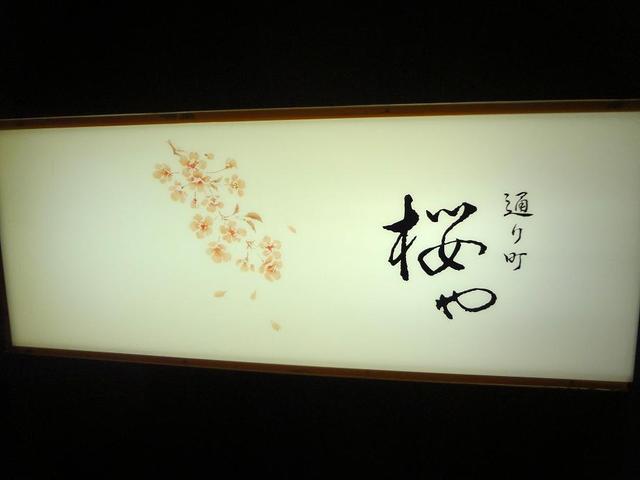 通り町
桜や